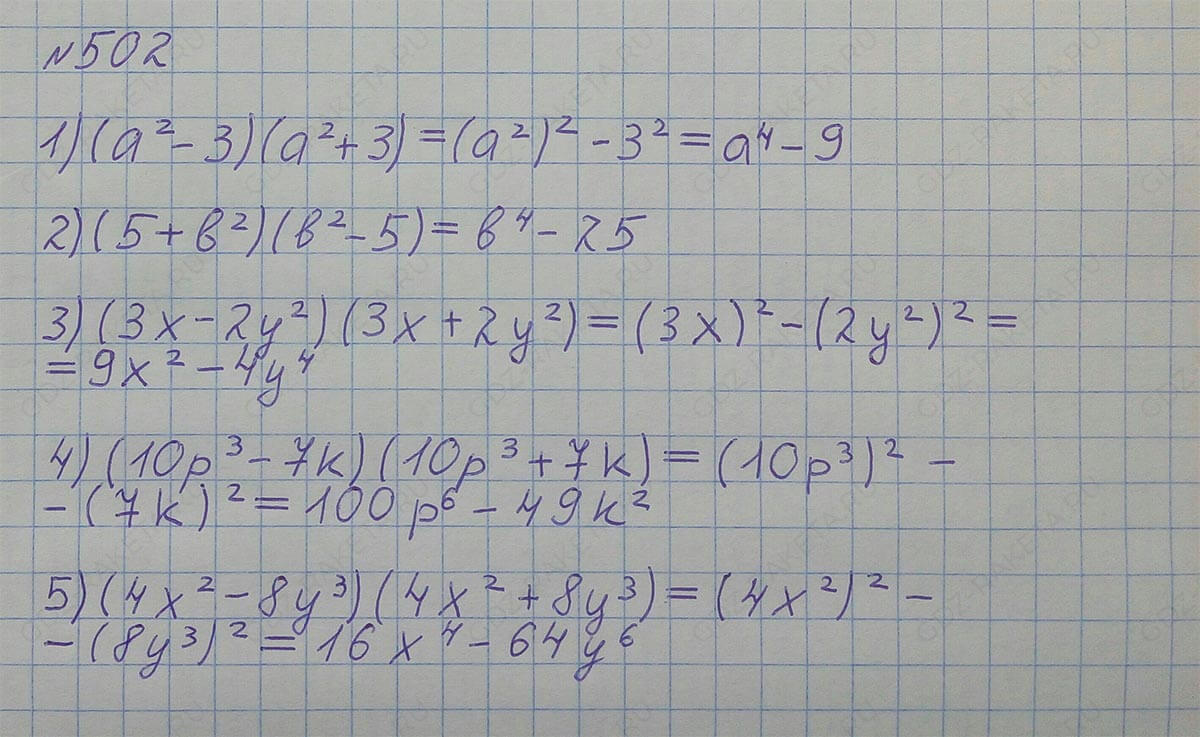 №502
1) (a² - 3)(a² + 3) = (a²)² - 3² = a⁴ - 9
2) (5 + b²)(b² - 5) = b⁴ - 25
3) (3x - 2y²)(3x + 2y²) = (3x)² - (2y²)² =
= 9x² - 4y⁴
4) (10p³ - 7k)(10p³ + 7k) = (10p³)² -
- (7k)² = 100p⁶ - 49k²
5) (4x² - 8y³)(4x² + 8y³) = (4x²)² -
- (8y³)² = 16x⁴ - 64y⁶